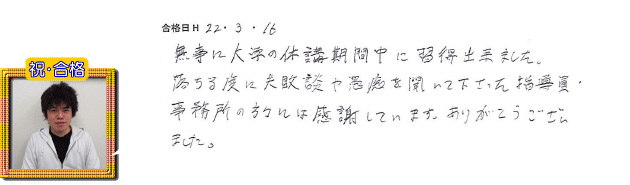 合格日 H 22・3・16
祝・合格
無事に大学の休講期間中に習得出来ました。
落ちる度に失敗談や愚痴を聞いて下さった指導員・
事務所の方には感謝しています。ありがとうござい
ました。